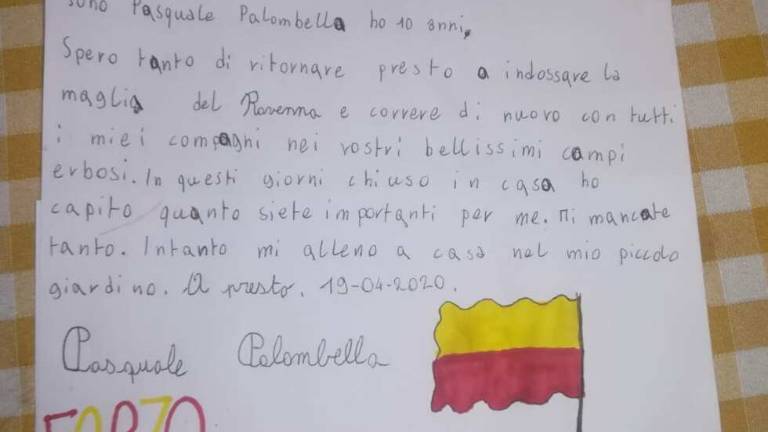 sono Pasquale Palombella ho 10 anni,
Spero tanto di ritornare presto a indossare la
maglia del Ravenna e correre di nuovo con tutti
i miei compagni nei vostri bellissimi campi
erbosi. In questi giorni chiuso in casa ho
capito quanto siete importanti per me. Mi mancate
tanto. Intanto mi alleno a casa nel mio piccolo
giardino. A presto. 19-04-2020.
Pasquale Palombella
FORZA